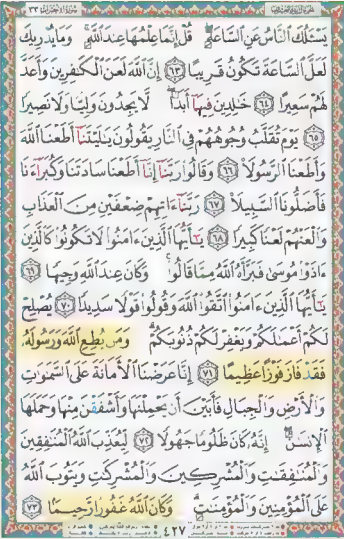 سُورَةُ الأحزاب ٣٣
يَسْـَٔلُكَ النَّاسُ عَنِ السَّاعَةِ ۖ قُلْ إِنَّمَا عِلْمُهَا عِندَ اللَّهِ ۚ وَمَا يُدْرِيكَ
لَعَلَّ السَّاعَةَ تَكُونُ قَرِيبًا ﴿٦٣﴾ إِنَّ اللَّهَ لَعَنَ الْكَـٰفِرِينَ وَأَعَدَّ
لَهُمْ سَعِيرًا ﴿٦٤﴾ خَـٰلِدِينَ فِيهَآ أَبَدًا ۖ لَّا يَجِدُونَ وَلِيًّا وَلَا نَصِيرًا
﴿٦٥﴾ يَوْمَ تُقَلَّبُ وُجُوهُهُمْ فِى النَّارِ يَقُولُونَ يَـٰلَيْتَنَآ أَطَعْنَا اللَّهَ
وَأَطَعْنَا الرَّسُولَا۠ ﴿٦٦﴾ وَقَالُوا۟ رَبَّنَآ إِنَّآ أَطَعْنَا سَادَتَنَا وَكُبَرَآءَنَا
فَأَضَلُّونَا السَّبِيلَا۠ ﴿٦٧﴾ رَبَّنَآ ءَاتِهِمْ ضِعْفَيْنِ مِنَ الْعَذَابِ
وَالْعَنْهُمْ لَعْنًا كَبِيرًا ﴿٦٨﴾ يَـٰٓأَيُّهَا الَّذِينَ ءَامَنُوا۟ لَا تَكُونُوا۟ كَالَّذِينَ
ءَاذَوْا۟ مُوسَىٰ فَبَرَّأَهُ اللَّهُ مِمَّا قَالُوا۟ ۚ وَكَانَ عِندَ اللَّهِ وَجِيهًا ﴿٦٩﴾
يَـٰٓأَيُّهَا الَّذِينَ ءَامَنُوا۟ اتَّقُوا۟ اللَّهَ وَقُولُوا۟ قَوْلًا سَدِيدًا ﴿٧٠﴾ يُصْلِحْ
لَكُمْ أَعْمَـٰلَكُمْ وَيَغْفِرْ لَكُمْ ذُنُوبَكُمْ ۗ وَمَن يُطِعِ اللَّهَ وَرَسُولَهُۥ
فَقَدْ فَازَ فَوْزًا عَظِيمًا ﴿٧١﴾ إِنَّا عَرَضْنَا الْأَمَانَةَ عَلَى السَّمَـٰوَٰتِ
وَالْأَرْضِ وَالْجِبَالِ فَأَبَيْنَ أَن يَحْمِلْنَهَا وَأَشْفَقْنَ مِنْهَا وَحَمَلَهَا
الْإِنسَـٰنُ ۖ إِنَّهُۥ كَانَ ظَلُومًا جَهُولًا ﴿٧٢﴾ لِّيُعَذِّبَ اللَّهُ الْمُنَـٰفِقِينَ
وَالْمُنَـٰفِقَـٰتِ وَالْمُشْرِكِينَ وَالْمُشْرِكَـٰتِ وَيَتُوبَ اللَّهُ
عَلَى الْمُؤْمِنِينَ وَالْمُؤْمِنَـٰتِ ۗ وَكَانَ اللَّهُ غَفُورًا رَّحِيمًا ﴿٧٣﴾
٤٢٧